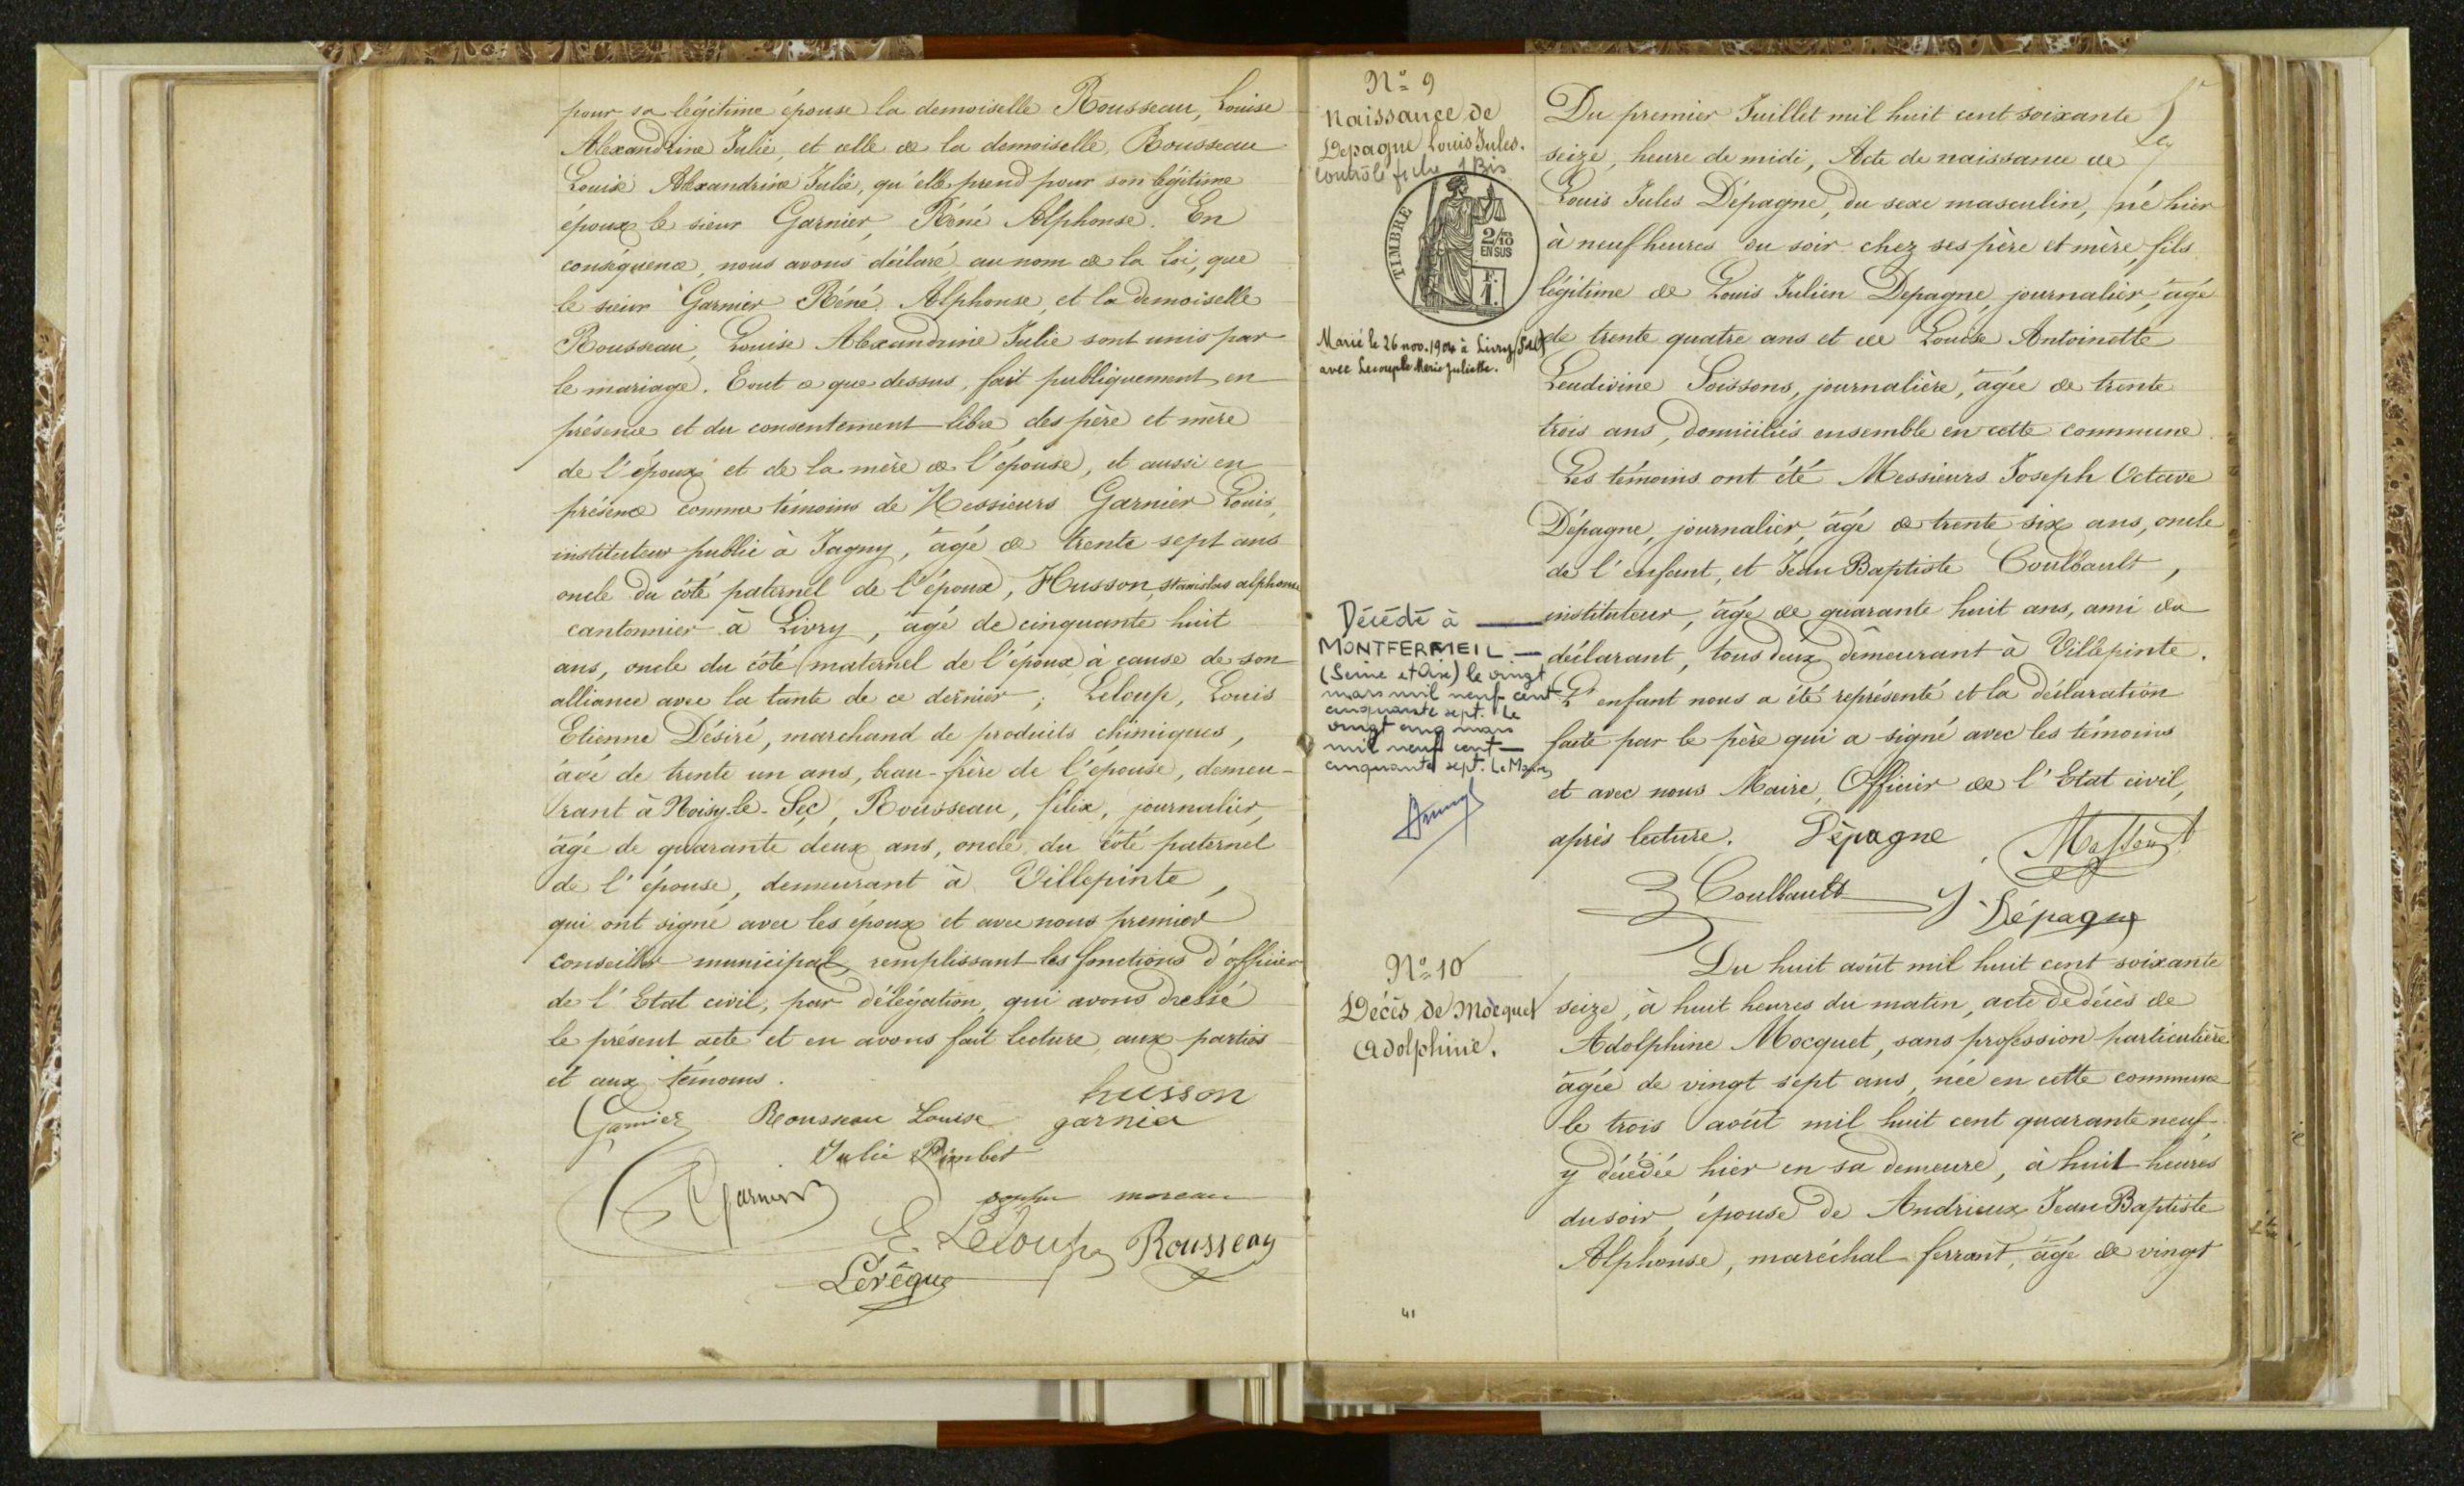 pour sa légitime épouse la demoiselle Rousseau, Louise
Alexandrine Julie, et celle de la demoiselle Rousseau
Louise Alexandrine Julie, qu'elle prend pour son légitime
époux le sieur Garnier, Réné Alphonse. En
conséquence, nous avons déclaré au nom de la Loi, que
le sieur Garnier Réné Alphonse, et la demoiselle
Rousseau, Louise Alexandrine Julie sont unis par
le mariage. Tout ce que dessus, fait publiquement en
présence et du consentement libre des père et mère
de l'époux et de la mère de l'épouse, et aussi en
présence comme témoins de Messieurs Garnier Louis,
instituteur public à Jagny, âgé de trente sept ans
oncle du côté paternel de l'époux, Husson, Stanislas alphonse
cantonnier à Livry, âgé de cinquante huit
ans, oncle du côté maternel de l'époux à cause de son
alliance avec la tante de ce dernier ; Leloup, Louis
Etienne Désiré, marchand de produits chimiques,
âgé de trente un ans, beau-frère de l'épouse, demeu-
rant à Noisy-le-Sec, Rousseau, félix, journalier,
âgé de quarante deux ans, oncle du côté paternel
de l'épouse, demeurant à Villepinte,
qui ont signé avec les époux et avec nous premier
conseiller municipal remplissant les fonctions d'officier
de l'Etat civil, par délégation, qui avons dressé
le présent acte et en avons fait lecture aux parties
et aux témoins.
husson
Garnier Rousseau Louise garnier
Julie Pimbet
Garnier moreau
E. Leloup Rousseau
Levêque
N° 9
Naissance de
Depagne Louis Jules.
Contrôlé fiche 1 Bis
TIMBRE
2/10
EN SUS
Marié le 26 nov. 1904 à Livry (S&O)
avec Lecouple Marie Juliette.
Décédé à
MONTFERMEIL
(Seine et Oise) le vingt
mars mil neuf cent
cinquante sept. Le
vingt cinq mars
mil neuf cent
cinquante sept. Le Maire,
Du premier Juillet mil huit cent soixante
seize, heure de midi, Acte de naissance de
Louis Jules Dépagne, du sexe masculin, né hier
à neuf heures du soir chez ses père et mère, fils
légitime de Louis Julien Depagne, journalier, âgé
de trente quatre ans et de Louise Antoinette
Leudivine Soissons, journalière, âgée de trente
trois ans, domiciliés ensemble en cette commune.
Les témoins ont été Messieurs Joseph Octave
Dépagne, journalier, âgé de trente six ans, oncle
de l'enfant, et Jean Baptiste Coulbault,
instituteur, âgé de quarante huit ans, ami du
déclarant, tous deux demeurant à Villepinte.
L'enfant nous a été représenté et la déclaration
faite par le père qui a signé avec les témoins
et avec nous Maire, Officier de l'Etat civil,
après lecture. Dépagne
Coulbault J Dépagne
N° 10
Décès de Mocquet
Adolphine.
Du huit août mil huit cent soixante
seize, à huit heures du matin, acte de décès de
Adolphine Mocquet, sans profession particulière
âgée de vingt sept ans, née en cette commune
le trois août mil huit cent quarante neuf,
y décédée hier en sa demeure, à huit heures
du soir, épouse de Andrieux Jean Baptiste
Alphonse, maréchal ferrant, âgé de vingt
41